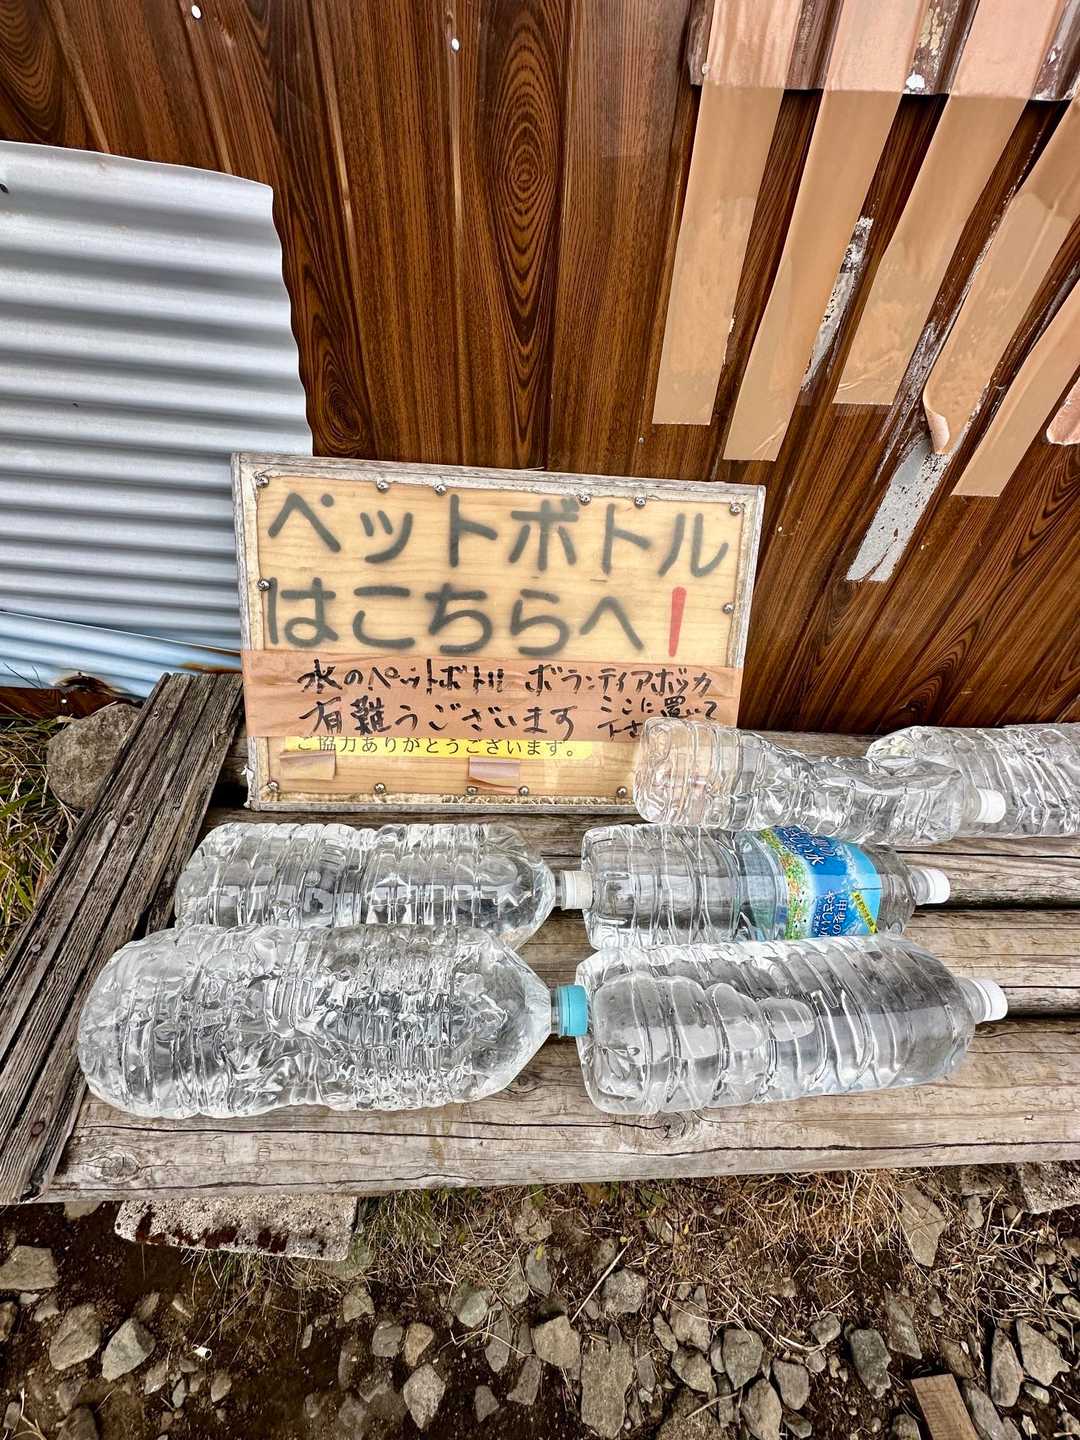 ペットボトル
はこちらへ!
水のペットボトル ボランティアボッカ
有難うございます ここに置いて
下さ
ご協力ありがとうございます。
甲斐の
やさしい水